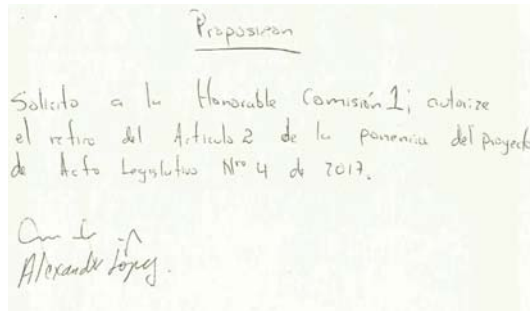 Proposicion
Solicito a la Honorable Comisión 1; autorize
el retiro del Articulo 2 de la ponencia del proyecto
de Acto Legislativo Nro 4 de 2017.
Alexander López.